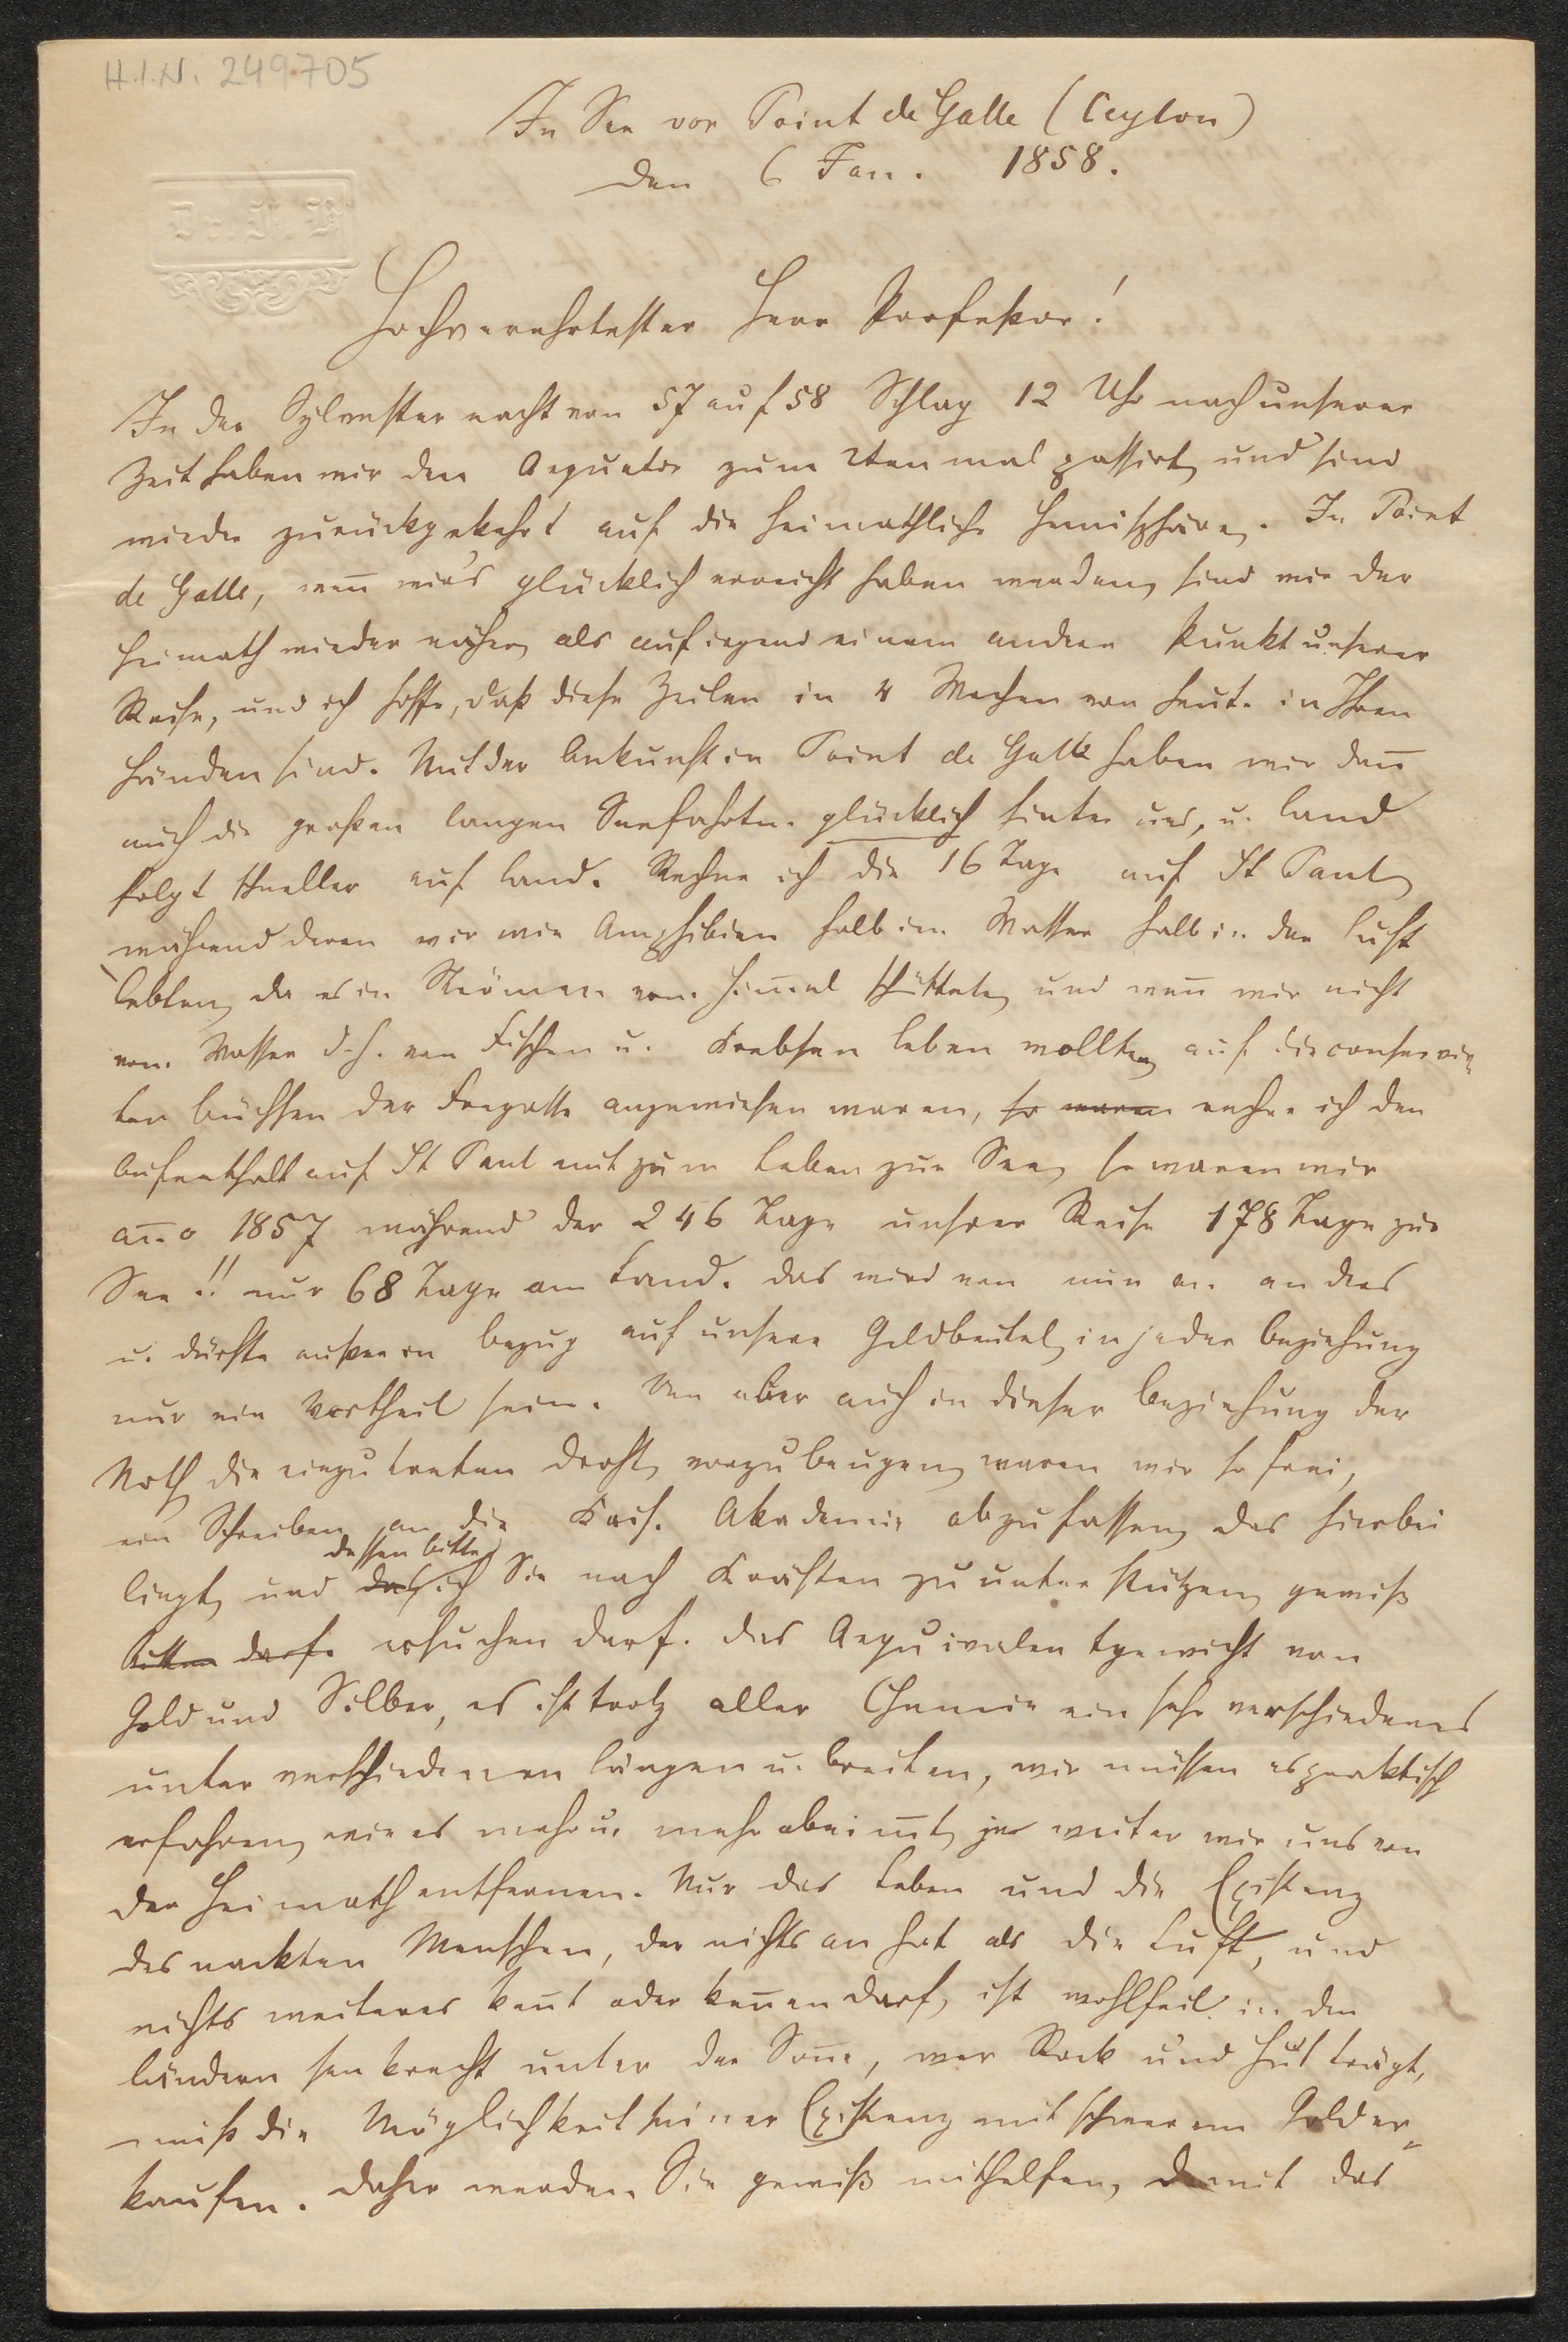 H.I.N. 249705
In See vor Point de Galle (Ceylon)
den 6 Jan. 1858.
Hochverehrtester Herr Professor!
In der Sylvesternacht von 57 auf 58 Schlag 12 Uhr nach unserer
Zeit haben wir den Aequator zum 2ten mal passirt, und sind
wieder zurückgekehrt auf die heimathliche Hemisphäre. In Point
de Galle, weñ wir's glücklich erreicht haben werden, sind wir der
Heimath wieder näher, als auf irgend einem andern Punkt unserer
Reise, und ich hoffe, daß diese Zeilen in 4 Wochen von heute in Ihren
Händen sind. Mit der Ankunft in Point de Galle haben wir dañ
auch die großen langen Seefahrten glücklich hinter uns, u. Land
folgt schneller auf Land. Rechne ich die 16 Tage auf St Paul,
während deren wir wie Amphibien halb im Wasser halb in der Luft
lebten, da es in Strömen vom Himel schüttete, und weñ wir nicht
vom Wasser d.h. von Fischen u. Krebsen leben wollten, auf die conservir-
ten Büchsen der Fregatte angewiesen waren, so waren rechne ich den
Aufenthalt auf St Paul mit zum Leben zur See, so waren wir
año 1857 während der 246 Tage unsrer Reise 178 Tage zur
See!! nur 68 Tage am Land. Das wird von nun an anders
u. dürfte außer in Bezug auf unsere Geldbeutel, in jeder Beziehung
nur ein Vortheil sein. Um aber auch in dieser Beziehung der
Noth, die einzutreten droht, vorzubeugen, waren wir so frei,
ein Schreiben an die Kais. Akademie abzufassen, das hierbei
dessen Bitte,
liegt, und das ich Sie nach Kräften zu unterstützen, gewiß
bitten darf. ersuchen darf. Das Aequivalentgewicht von
Gold und Silber, es ist trotz aller Chemie ein sehr verschiedenes
unter verschiedenen Längen u. Breiten, wir müssen es praktisch
erfahren, wie es mehr u. mehr abnimt, je weiter wir uns von
der Heimath entfernen. Nur das Leben und die Existenz
des nackten Menschen, der nichts an hat als die Luft, und
nichts weiteres keñt oder keñen darf, ist wohlfeil in den
Ländern senkrecht unter der Soñe, wer Rock und Hut trägt,
muß die Möglichkeit seiner Existenz mit schwerem Gold er-
kaufen. Daher werden Sie gewiß mithelfen, damit das